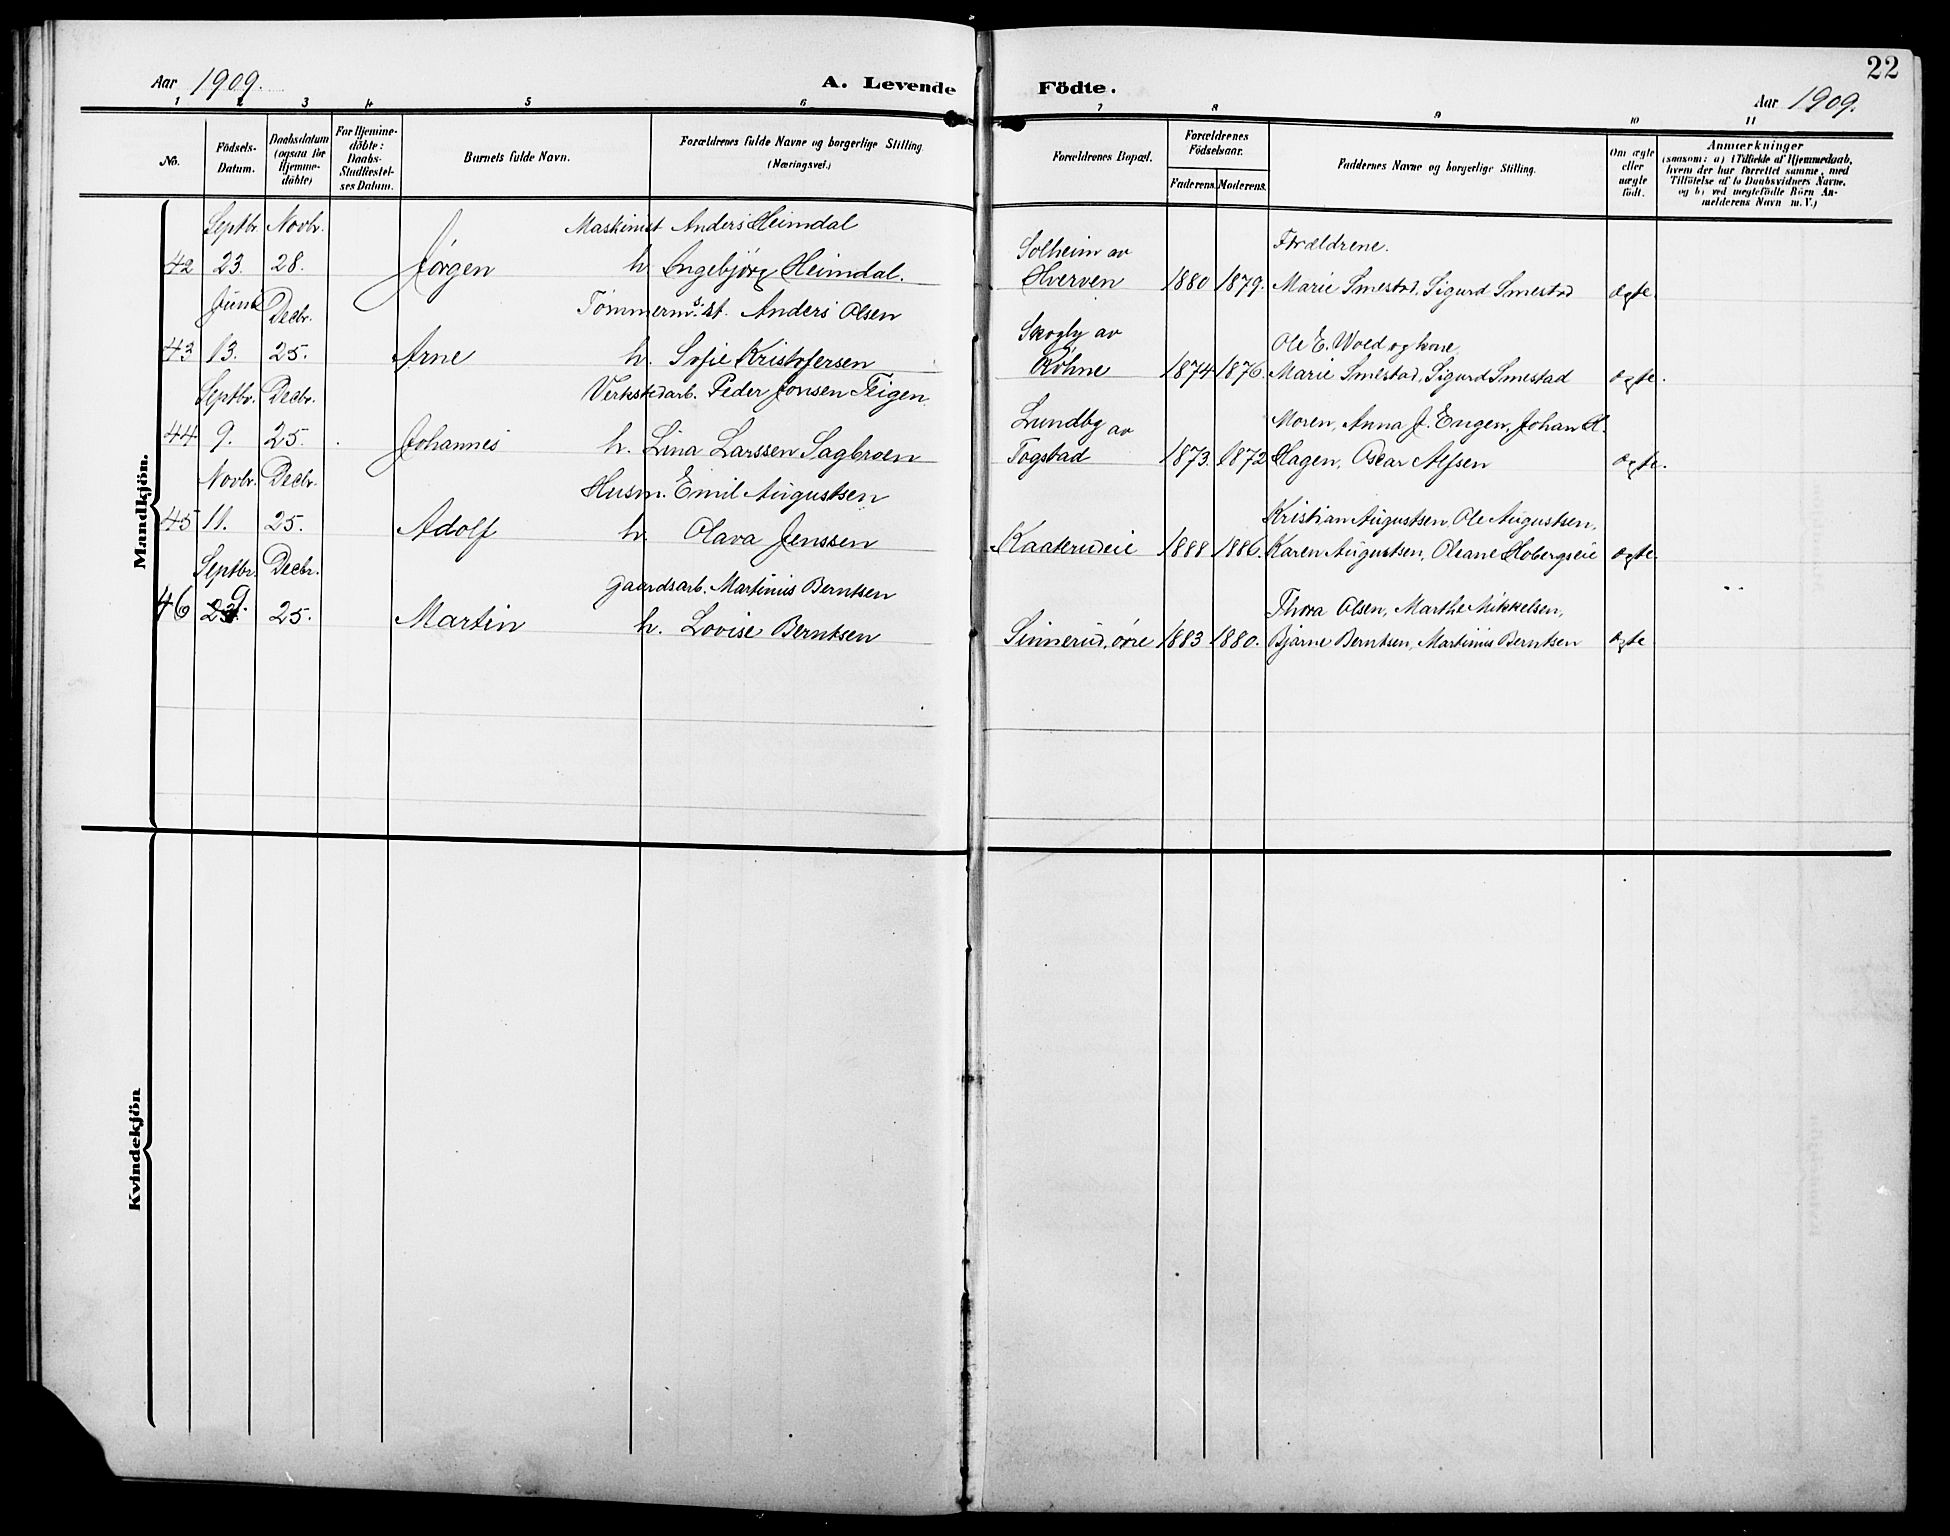 Aar 1909.
A. Levende Födte.
22
Aar 1909.
1 2 3 4 5 6 7 8 9 10 11
No.
Födsels-
Datum.
Daabsdatum
(ogsaa for
Hjemme-
döbte)
For Hjemme-
döbte:
Daabs-
Stadfæstel-
ses Datum.
Barnets fulde Navn.
Forældrenes fulde Navne og borgerlige Stilling
(Næringsvei.)
Forældrenes Bopæl.
Forældrenes
Födselsaar.
Faderens. Moderens.
Faddernes Navne og borgerlige Stilling.
Om ægte
eller
uægte
födt.
Anmærkninger
(saasom: a) i Tilfælde af Hjemmedaab,
hvem der har forrettet samme, med
Tilföielse af to Daabsvidners Navne,
og b) ved uægtefödte Börn An-
melderens Navn m. V.)
Mandkjön.
Septbr. Novbr. Maskinist Anders Heimdal Solheim av Forældrene.
42 23. 28. Jørgen h. Ingebjörg Heimdal. Hverven 1880 1879. Marie Smestad, Sigurd Smestad ægte.
Juni Decbr. Tømmerm. st. Anders Olsen Skogly av Ole E. Wold og kone
43 13. 25. Arne h. Sofie Kristofersen Röhne 1874 1876. Marie Smestad, Sigurd Smestad ægte.
Septbr. Decbr. Verkstedarb. Peder Jonsen Teigen Lundby av Moren, Anna J. Engen, Johan H.
44 9. 25. Johannes h. Lina Larssen Sagbroen Togstad 1873. 1872 Hagen, Oscar Alfsen ægte.
Novbr. Decbr. Husm. Emil Augustsen Kristian Augustsen, Ole Augustsen,
45 11. 25. Adolf h. Olava Jenssen Kaaterudeie 1888 1886. Karen Augustsen, Oleane Hobergseie ægte.
Septbr. Decbr. Gaardsarb. Martinius Berntsen Thora Olsen, Marthe Mikkelsen,
46 9. 25. Martin h. Lovise Berntsen Sinnerud, øvre 1883 1880. Bjarne Berntsen, Martinius Berntsen ægte
Kvindekjön